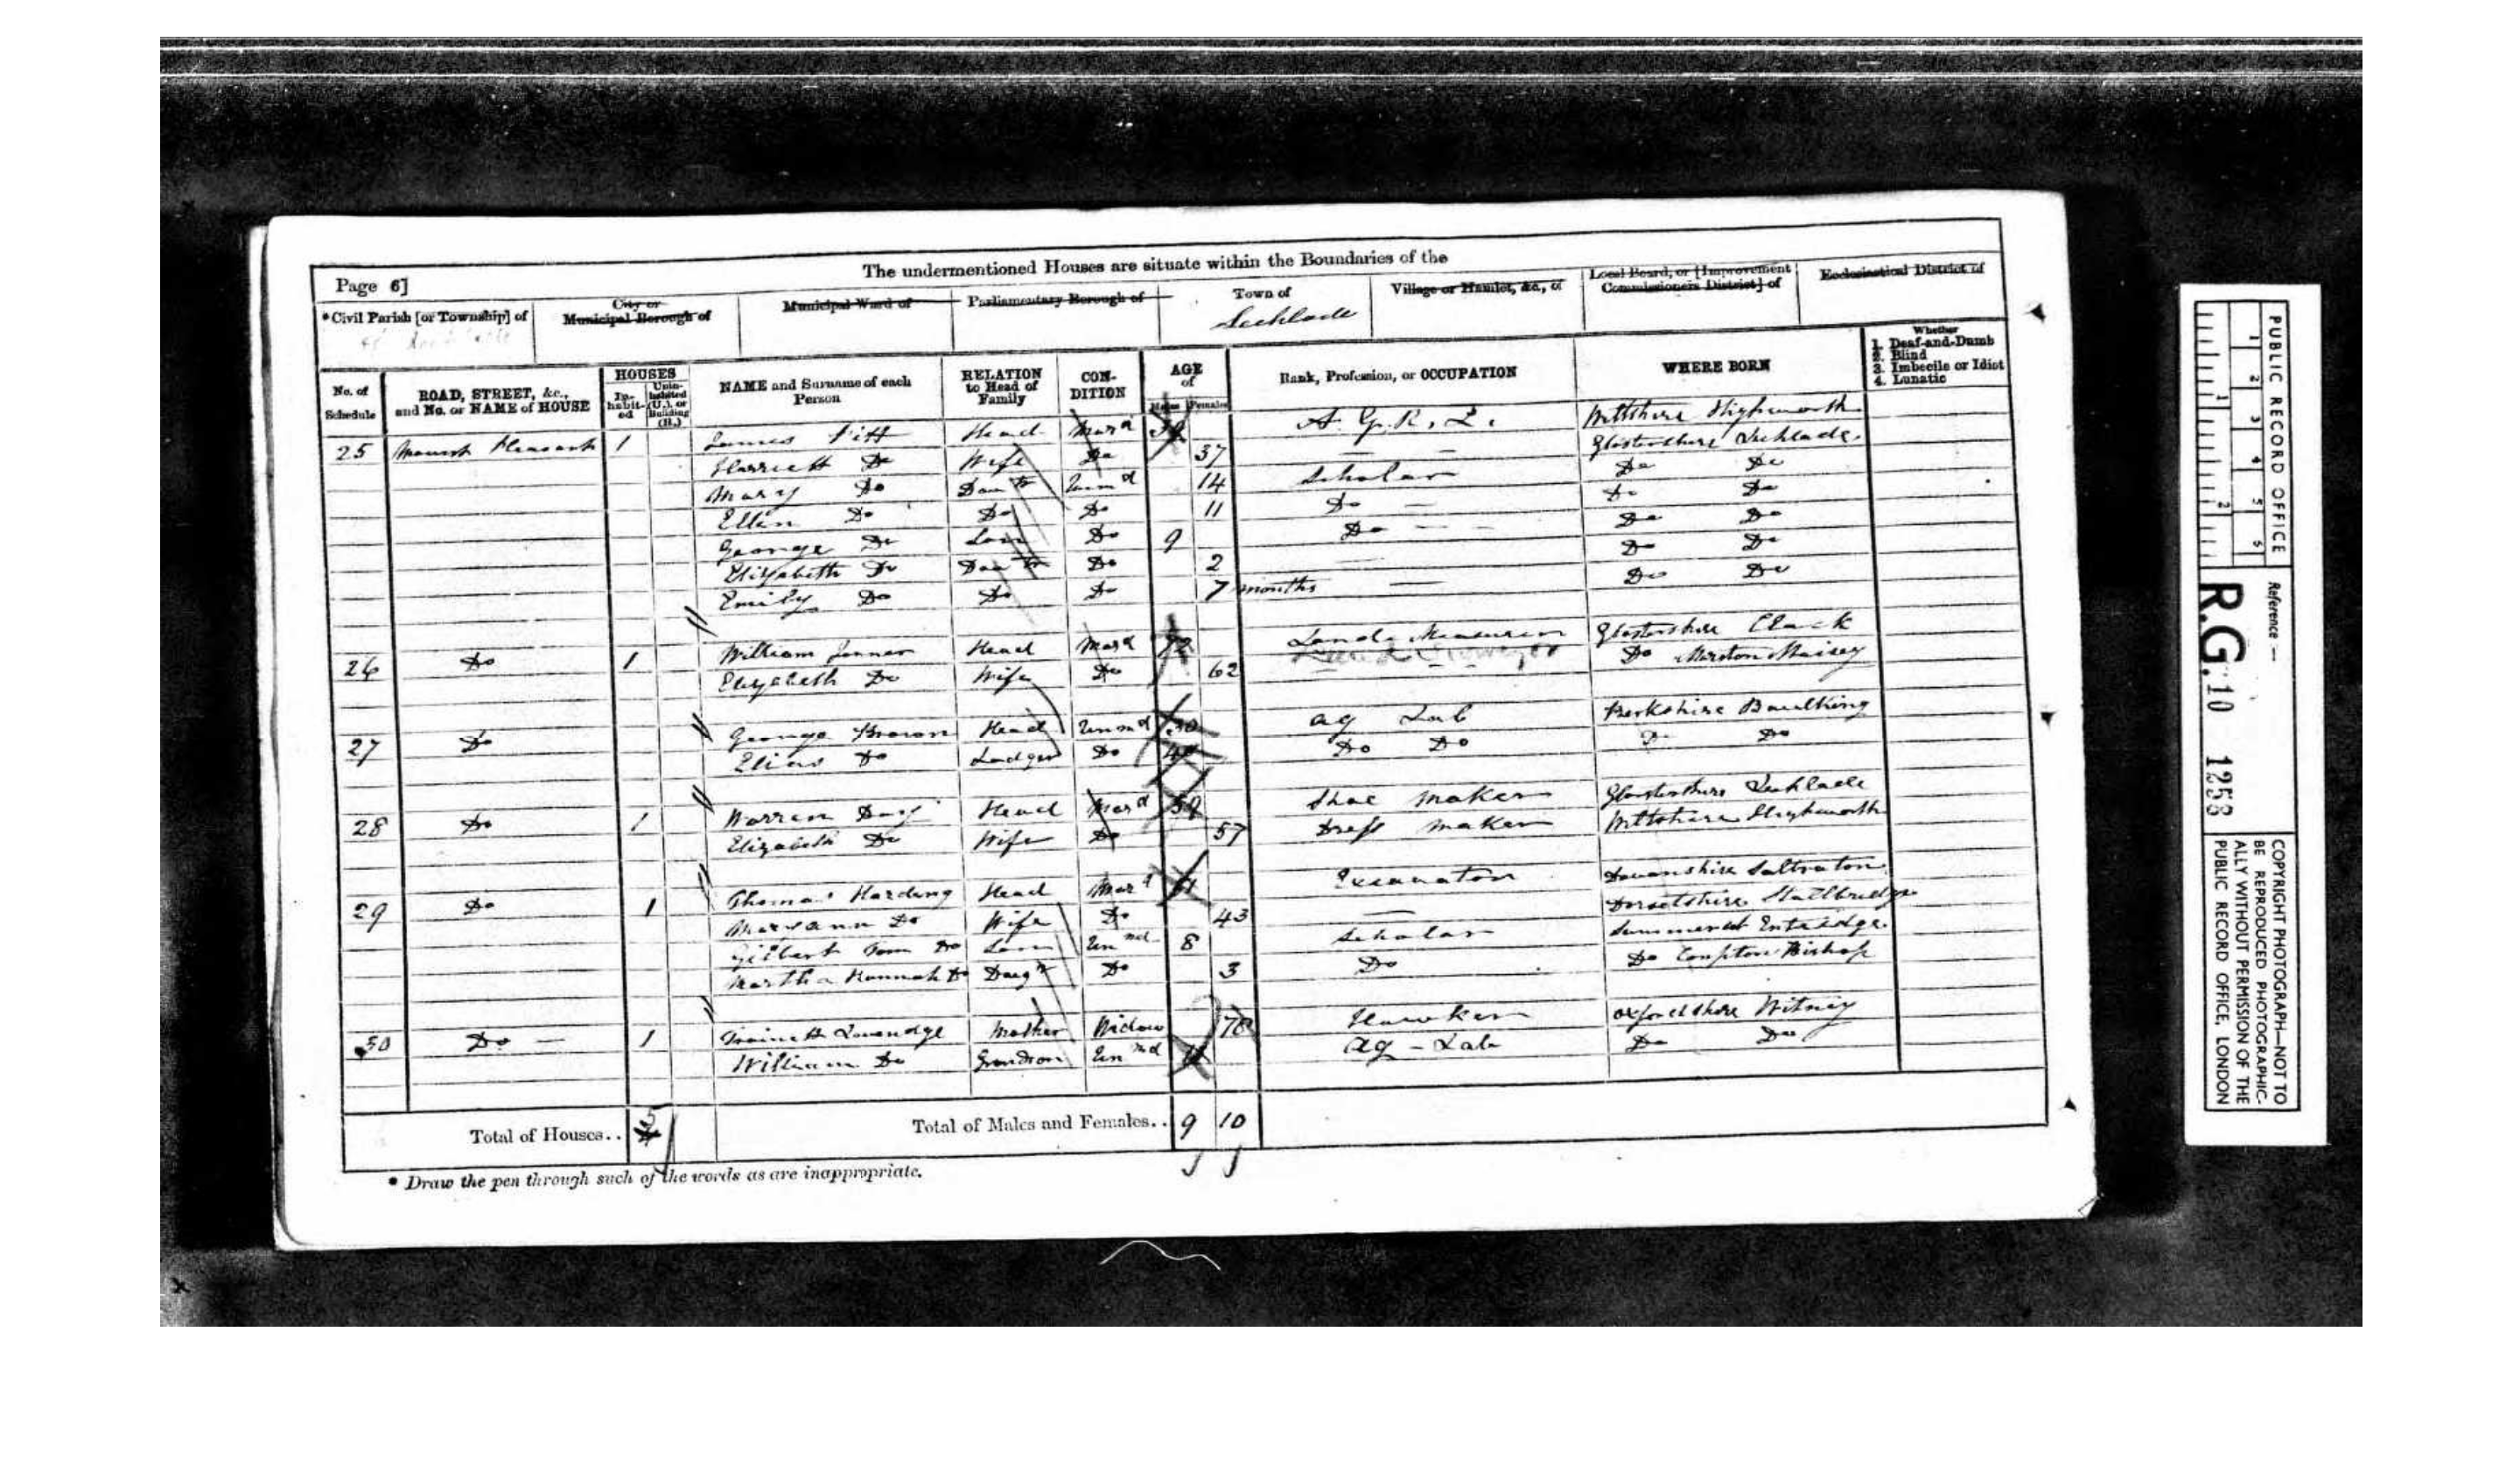 The undermentioned Houses are situate within the Boundaries of the
Page 6]
*Civil Parish [or Township] of
City or Municipal Borough of
Municipal Ward of
Parliamentary Borough of
Town of Lechlade
Village or Hamlet, &c., of
Local Board, or [Improvement Commissioners District] of
Ecclesiastical District of
No. of Schedule
ROAD, STREET, &c., and No. or NAME of HOUSE
HOUSES
Inhabited
Uninhabited (U.), or Building (B.)
NAME and Surname of each Person
RELATION to Head of Family
CONDITION
AGE of
Males Females
Rank, Profession, or OCCUPATION
WHERE BORN
Whether
1. Deaf-and-Dumb
2. Blind
3. Imbecile or Idiot
4. Lunatic
25 Mount Pleasant 1 James Pitt Head Mard A. G. R. L. Wiltshire Highworth
Harriett Do Wife Do 37 Glostershire Lechlade
Mary Do Dautr Unmd 14 Scholar Do Do
Ellen Do Do Do 11 Do Do Do
George Do Son Do 9 Do Do Do
Elizabeth Do Dautr Do 2 Do Do
Emily Do Do Do 7 months Do Do
26 Do 1 William Jenner Head Mard 72 Land Measurer Glostershire
Elizabeth Do Wife Do 62 Do Marston Maisey
27 Do George Brown Head Unmd Ag Lab Berkshire Baulking
Elias Do Lodger Do Do Do Do Do
28 Do 1 Warren Day Head Mard Shoe Maker Glostershire Lechlade
Elizabeth Do Wife Do 57 Dress Maker Wiltshire Highworth
29 Do 1 Thomas Harding Head Mard Excavator Devonshire
Maryann Do Wife Do 43 Dorsetshire Stallbridge
Gilbert Tom Do Son Unmd 8 Scholar Summerset
Martha Hannah Do Daugr Do 3 Do Do Compton Bishop
30 Do 1 Mother Widow 78 Hawker Oxfordshire Witney
William Do Grandson Unmd Ag-Lab Do Do
Total of Houses.. 5
Total of Males and Females.. 9 10
* Draw the pen through such of the words as are inappropriate.
PUBLIC RECORD OFFICE
1 2 3 4 5 6
1 2
Reference —
R.G. 10 1253
COPYRIGHT PHOTOGRAPH—NOT TO BE REPRODUCED PHOTOGRAPHICALLY WITHOUT PERMISSION OF THE PUBLIC RECORD OFFICE, LONDON